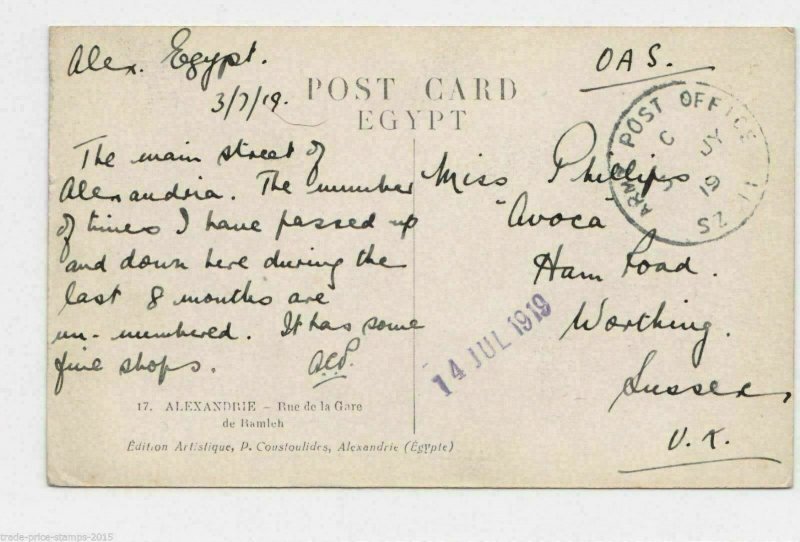 Alex. Egypt.
3/7/19.
POST CARD
EGYPT
The main street of
Alexandria. The number
of times I have passed up
and down here during the
last 8 months are
un-numbered. It has some
fine shops.
17. ALEXANDRIE – Rue de la Gare
de Ramleh
Édition Artistique, P. Coustoulides, Alexandrie (Égypte)
OAS.
ARMY POST OFFICE
Miss Phillips
"Avoca"
Ham Road.
Worthing.
Sussex,
U.K.
14 JUL 1919
trade-price-stamps-2015